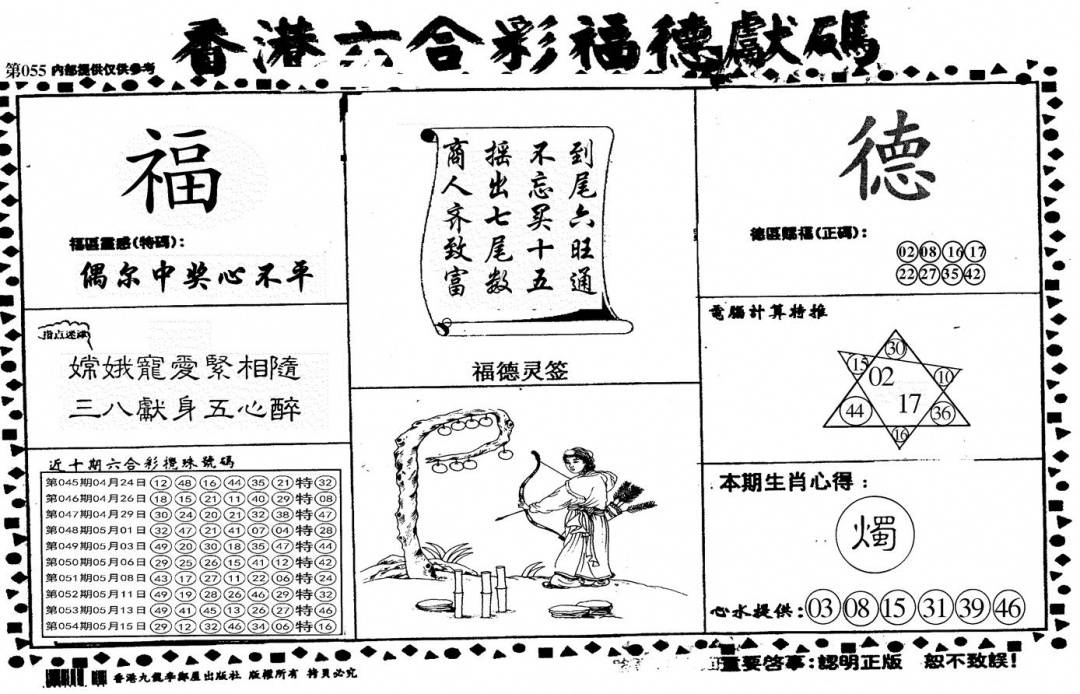 香港六合彩福德獻碼
第055 内部提供仅供参考
福
福區靈感(特碼):
偶尔中奖心不平
指点迷津
嫦娥寵愛緊相隨
三八獻身五心醉
近十期六合彩攪珠號碼
第045期04月24日 12 48 16 44 35 21 特 32
第046期04月26日 18 15 21 11 40 29 特 08
第047期04月29日 30 24 20 21 32 38 特 47
第048期05月01日 32 47 21 41 07 04 特 28
第049期05月03日 49 20 30 18 35 47 特 44
第050期05月06日 29 25 26 15 41 12 特 42
第051期05月08日 43 17 27 11 22 06 特 24
第052期05月11日 49 19 28 26 46 29 特 32
第053期05月13日 49 41 45 13 26 27 特 46
第054期05月15日 29 12 32 46 34 06 特 16
到尾六旺通
不忘买十五
摇出七尾数
商人齐致富
福德灵签
德
德區賜福(正碼):
02 08 16 17
22 27 35 42
電腦計算特推
30
15 02 10
44 17 36
16
本期生肖心得:
燭
心水提供:03 08 15 31 39 46
香港九龍李鄭屋出版社 版權所有 拷貝必究
重要啓事:認明正版 恕不致誤!